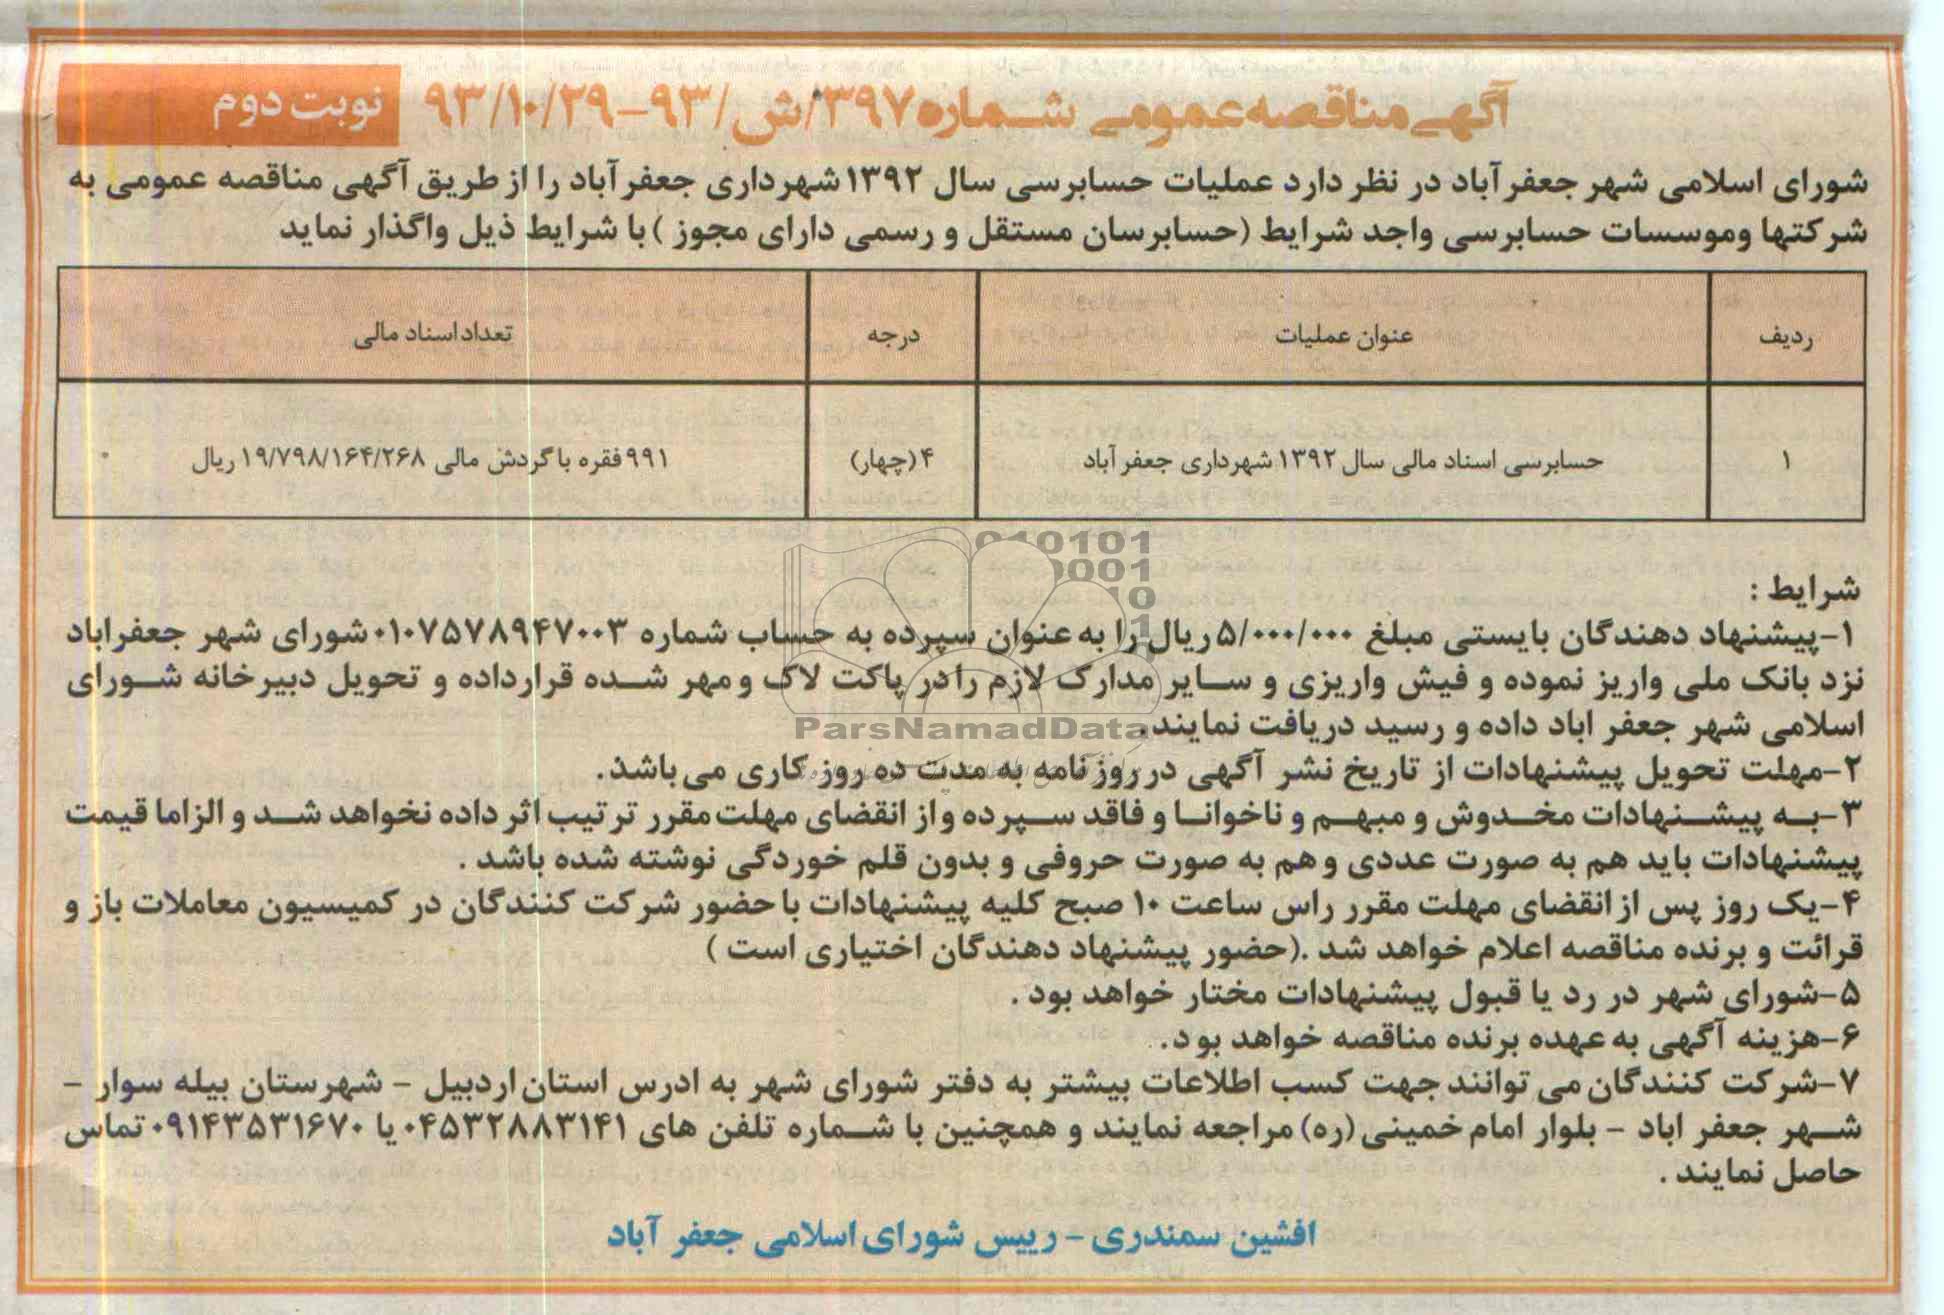 آگهی مناقصه عمومی شماره ۳۹۷/ش/۹۳-۹۳/۱۰/۲۹
نوبت دوم
شورای اسلامی شهر جعفر آباد در نظر دارد عملیات حسابرسی سال ۱۳۹۲ شهرداری جعفر آباد را از طریق آگهی مناقصه عمومی به
شرکتها وموسسات حسابرسی واجد شرایط (حسابرسان مستقل و رسمی دارای مجوز ) با شرایط ذیل واگذار نماید
ردیف عنوان عملیات درجه تعداد اسناد مالی
۱ حسابرسی اسناد مالی سال ۱۳۹۲ شهرداری جعفر آباد ۴ (چهار) ۹۹۱ فقره با گردش مالی ۱۹/۷۹۸/۱۶۴/۲۶۸ ریال
شرایط :
۱-پیشنهاد دهندگان بایستی مبلغ ۵/۰۰۰/۰۰۰ ریال را به عنوان سپرده به حساب شماره ۰۱۰۷۵۷۸۹۴۷۰۰۳ شورای شهر جعفراباد
نزد بانک ملی واریز نموده و فیش واریزی و سایر مدارک لازم را در پاکت لاک و مهر شده قرارداده و تحویل دبیرخانه شورای
اسلامی شهر جعفر اباد داده و رسید دریافت نمایند.
۲-مهلت تحویل پیشنهادات از تاریخ نشر آگهی در روزنامه به مدت ده روز کاری می باشد.
۳-به پیشنهادات مخدوش و مبهم و ناخوانا و فاقد سپرده و از انقضای مهلت مقرر ترتیب اثر داده نخواهد شد و الزاما قیمت
پیشنهادات باید هم به صورت عددی و هم به صورت حروفی و بدون قلم خوردگی نوشته شده باشد .
۴-یک روز پس از انقضای مهلت مقرر راس ساعت ۱۰ صبح کلیه پیشنهادات با حضور شرکت کنندگان در کمیسیون معاملات باز و
قرائت و برنده مناقصه اعلام خواهد شد .(حضور پیشنهاد دهندگان اختیاری است )
۵-شورای شهر در رد یا قبول پیشنهادات مختار خواهد بود .
۶-هزینه آگهی به عهده برنده مناقصه خواهد بود.
۷-شرکت کنندگان می توانند جهت کسب اطلاعات بیشتر به دفتر شورای شهر به ادرس استان اردبیل - شهرستان بیله سوار -
شهر جعفر اباد - بلوار امام خمینی (ره) مراجعه نمایند و همچنین با شماره تلفن های ۰۴۵۳۲۸۸۳۱۴۱ یا ۰۹۱۴۳۵۳۱۶۷۰ تماس
حاصل نمایند .
افشین سمندری - رییس شورای اسلامی جعفر آباد
ParsNamadData